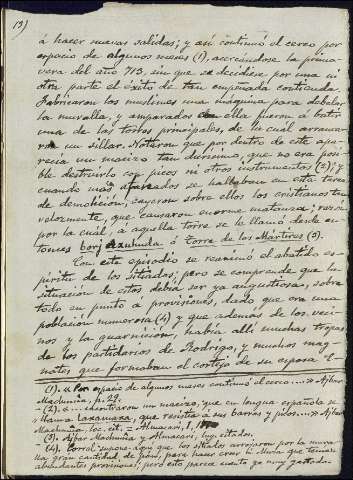 13)
á hacer nuevas salidas; y así continuó el cerco por
espacio de algunos meses (1), acercándose la prima-
vera del año 713, sin que se decidiese por una ni
otra parte el éxito de tan empeñada contienda.
Fabricaron los muslimes una máquina para debelar
la muralla, y amparados con ella fueron á batir
una de las torres principales, de la cual arranca-
ron un sillar. Notaron que por dentro de este apa-
recía un macizo tan durísimo, que no era posi-
ble destruirlo con picos ni otros instrumentos (2); y
cuando más afanados se hallaban en esta tarea
de demolición, cayeron sobre ellos los cristianos tan
velozmente, que causaron enorme matanza; razón
por la cual, á aquella torre se le llamó desde en-
tonces borj axuhada ó torre de los Mártires (3).
Con este episodio se reanimó el abatido es-
píritu de los sitiados; pero se comprende que la
situación de estos debía ser ya angustiosa, sobre
todo en punto á provisiones, dado que era una
población numerosa (4) y que además de los veci-
nos y la guarnición, había allí muchas tropas
de los partidarios de Rodrigo, y muchos mag-
nates que formaban el cortejo de su esposa
(1). « Por espacio de algunos meses continuó el cerco....» Ajbar
Machmúa, p. 29.
(2). «... encontraron un macizo, que en lengua española se
llama que resistía á sus barras y picos...» Ajbar
Machmúa, loc. cit. = Almacari, I,
(3). Ajbar Machmúa y Almacari, lug. citados.
(4). supone que los sitiados arrojaron por la mura-
lla gran cantidad de pan, para hacer creer á Muza que tenían
abundantes provisiones; pero esto parece cuento ya muy gastado.